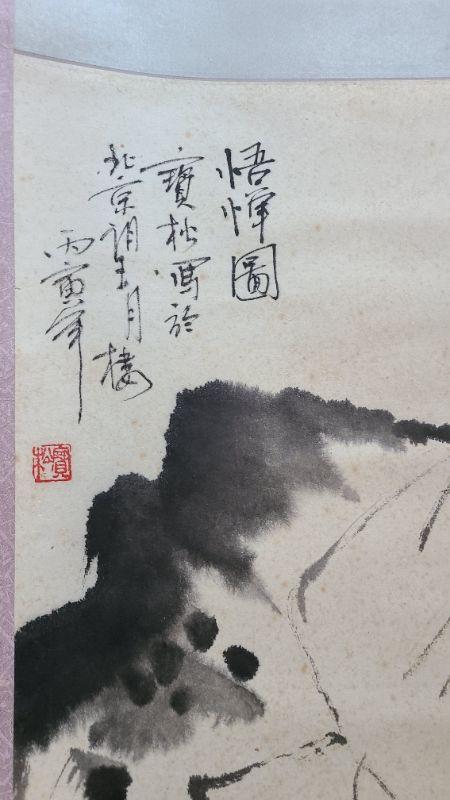 悟惮圖
寶松寫於
北京明王月樓
丙寅年
寶松